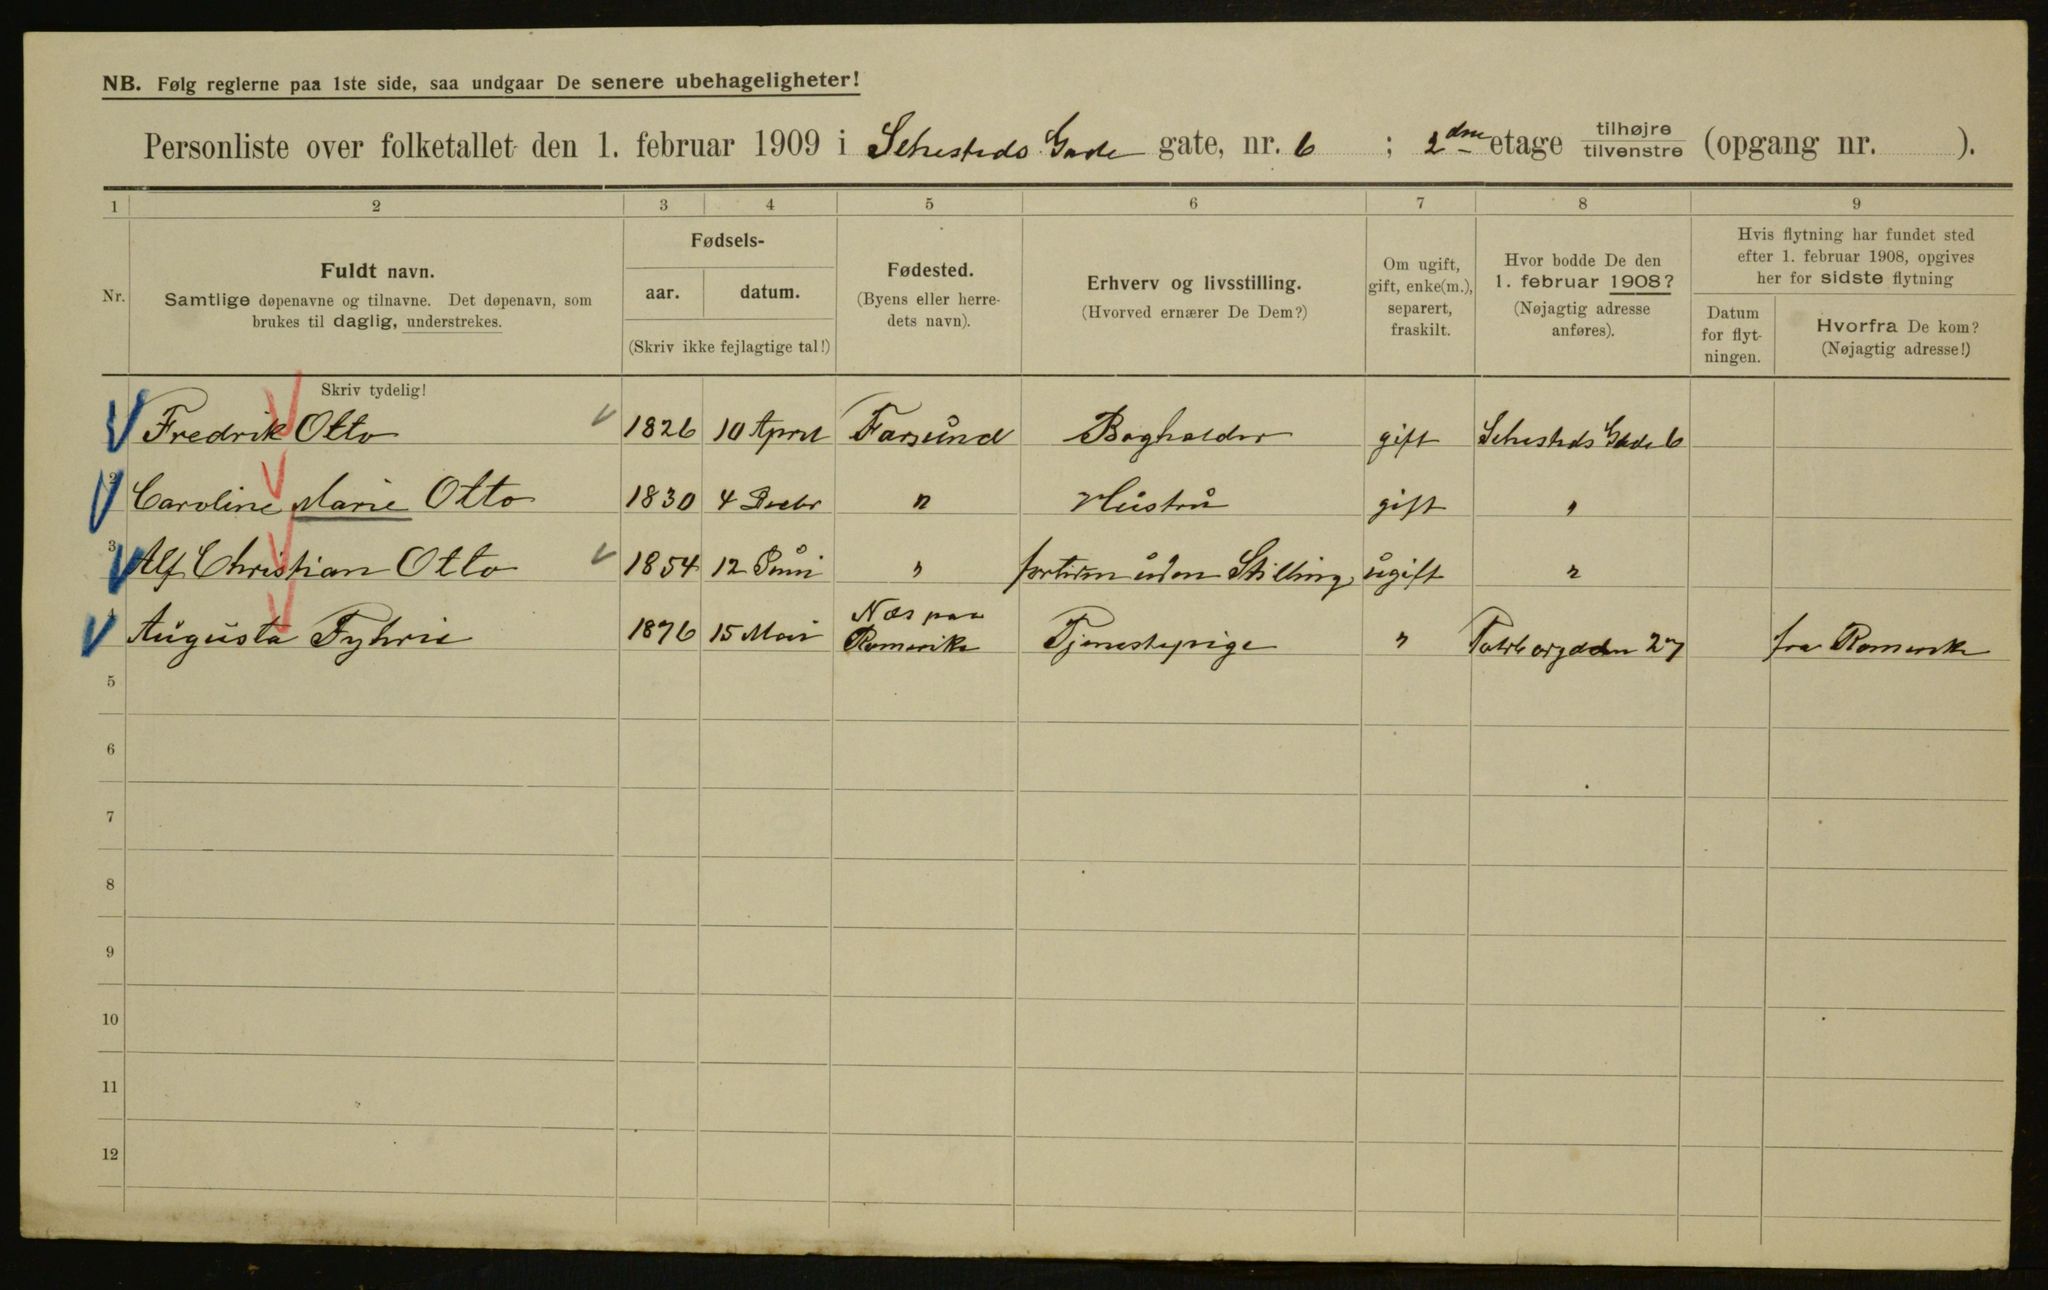 NB. Følg reglerne paa 1ste side, saa undgaar De senere ubehageligheter!
Personliste over folketallet den 1. februar 1909 i Sehesteds Gade gate, nr. 6 ; 2den etage tilhøjre tilvenstre (opgang nr. ).
1 2 3 4 5 6 7 8 9
Nr.
Fuldt navn.
Samtlige døpenavne og tilnavne. Det døpenavn, som
brukes til daglig, understrekes.
Fødsels-
aar. datum.
(Skriv ikke fejlagtige tal!)
Fødested.
(Byens eller herre-
dets navn).
Erhverv og livsstilling.
(Hvorved ernærer De Dem?)
Om ugift,
gift, enke(m.),
separert,
fraskilt.
Hvor bodde De den
1. februar 1908?
(Nøjagtig adresse
anføres).
Hvis flytning har fundet sted
efter 1. februar 1908, opgives
her for sidste flytning
Datum
for flyt-
ningen.
Hvorfra De kom?
(Nøjagtig adresse!)
Skriv tydelig!
Fredrik Otto 1826 10 April Farsund Bogholder gift Sehesteds Gade 6
2 Caroline Marie Otto 1830 4 Decbr " Hustru gift "
3 Alf Christian Otto 1854 12 Juni " uden Stilling ugift "
4 Augusta Fyhrie 1876 15 Mai Næs paa Romerike Tjenestepige " 27 fra Romerike
5
6
7
8
9
10
11
12